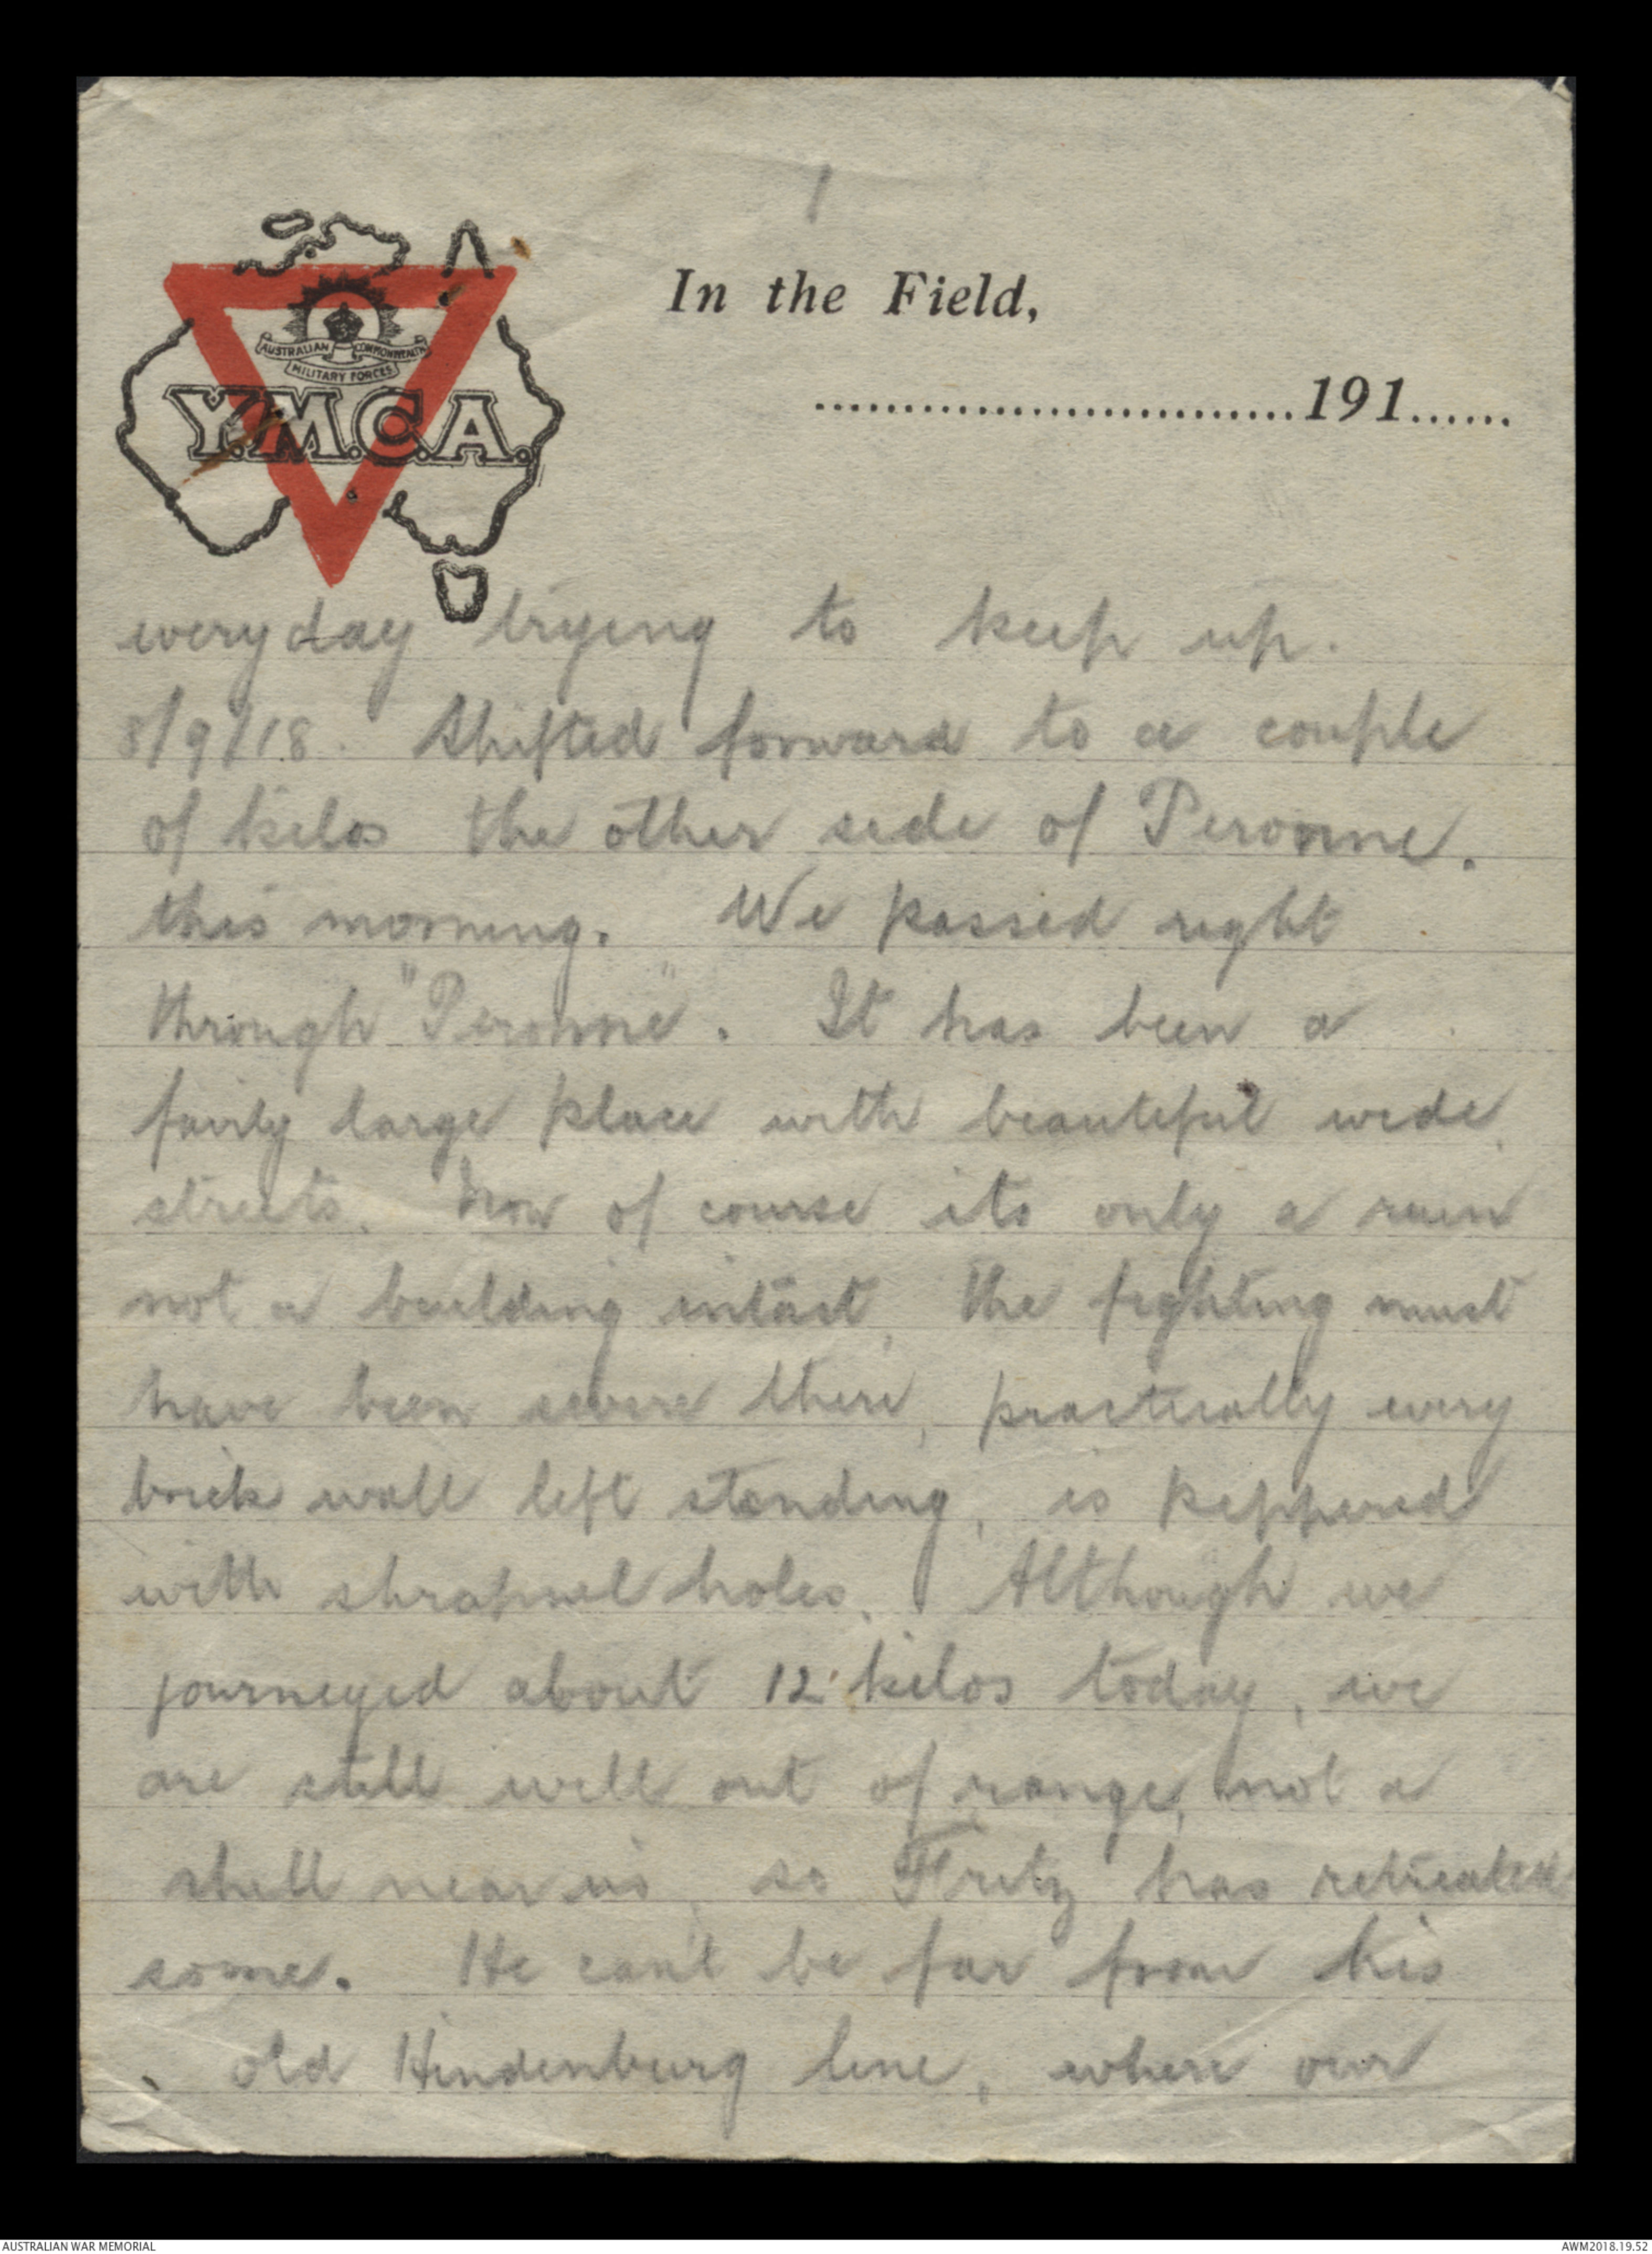 1
In the Field,
AUSTRALIAN COMMONWEALTH
MILITARY FORCES
Y.M.C.A.
..............................191......
everyday trying to keep up.
8/9/18. Shifted forward to a couple
of kilos the other side of Peronne.
this morning. We passed right
through "Peronne". It has been a
fairly large place with beautiful wide
streets. Now of course its only a ruin
not a building intact, the fighting must
have been severe there, practically every
brick wall left standing, is peppered
with shrapnel holes. Although we
journeyed about 12 kilos today, we
are still well out of range, not a
shell near us, so Fritz has retreated
some. He can't be far from his
old Hindenburg line, where our
AUSTRALIAN WAR MEMORIAL
AWM2018.19.52